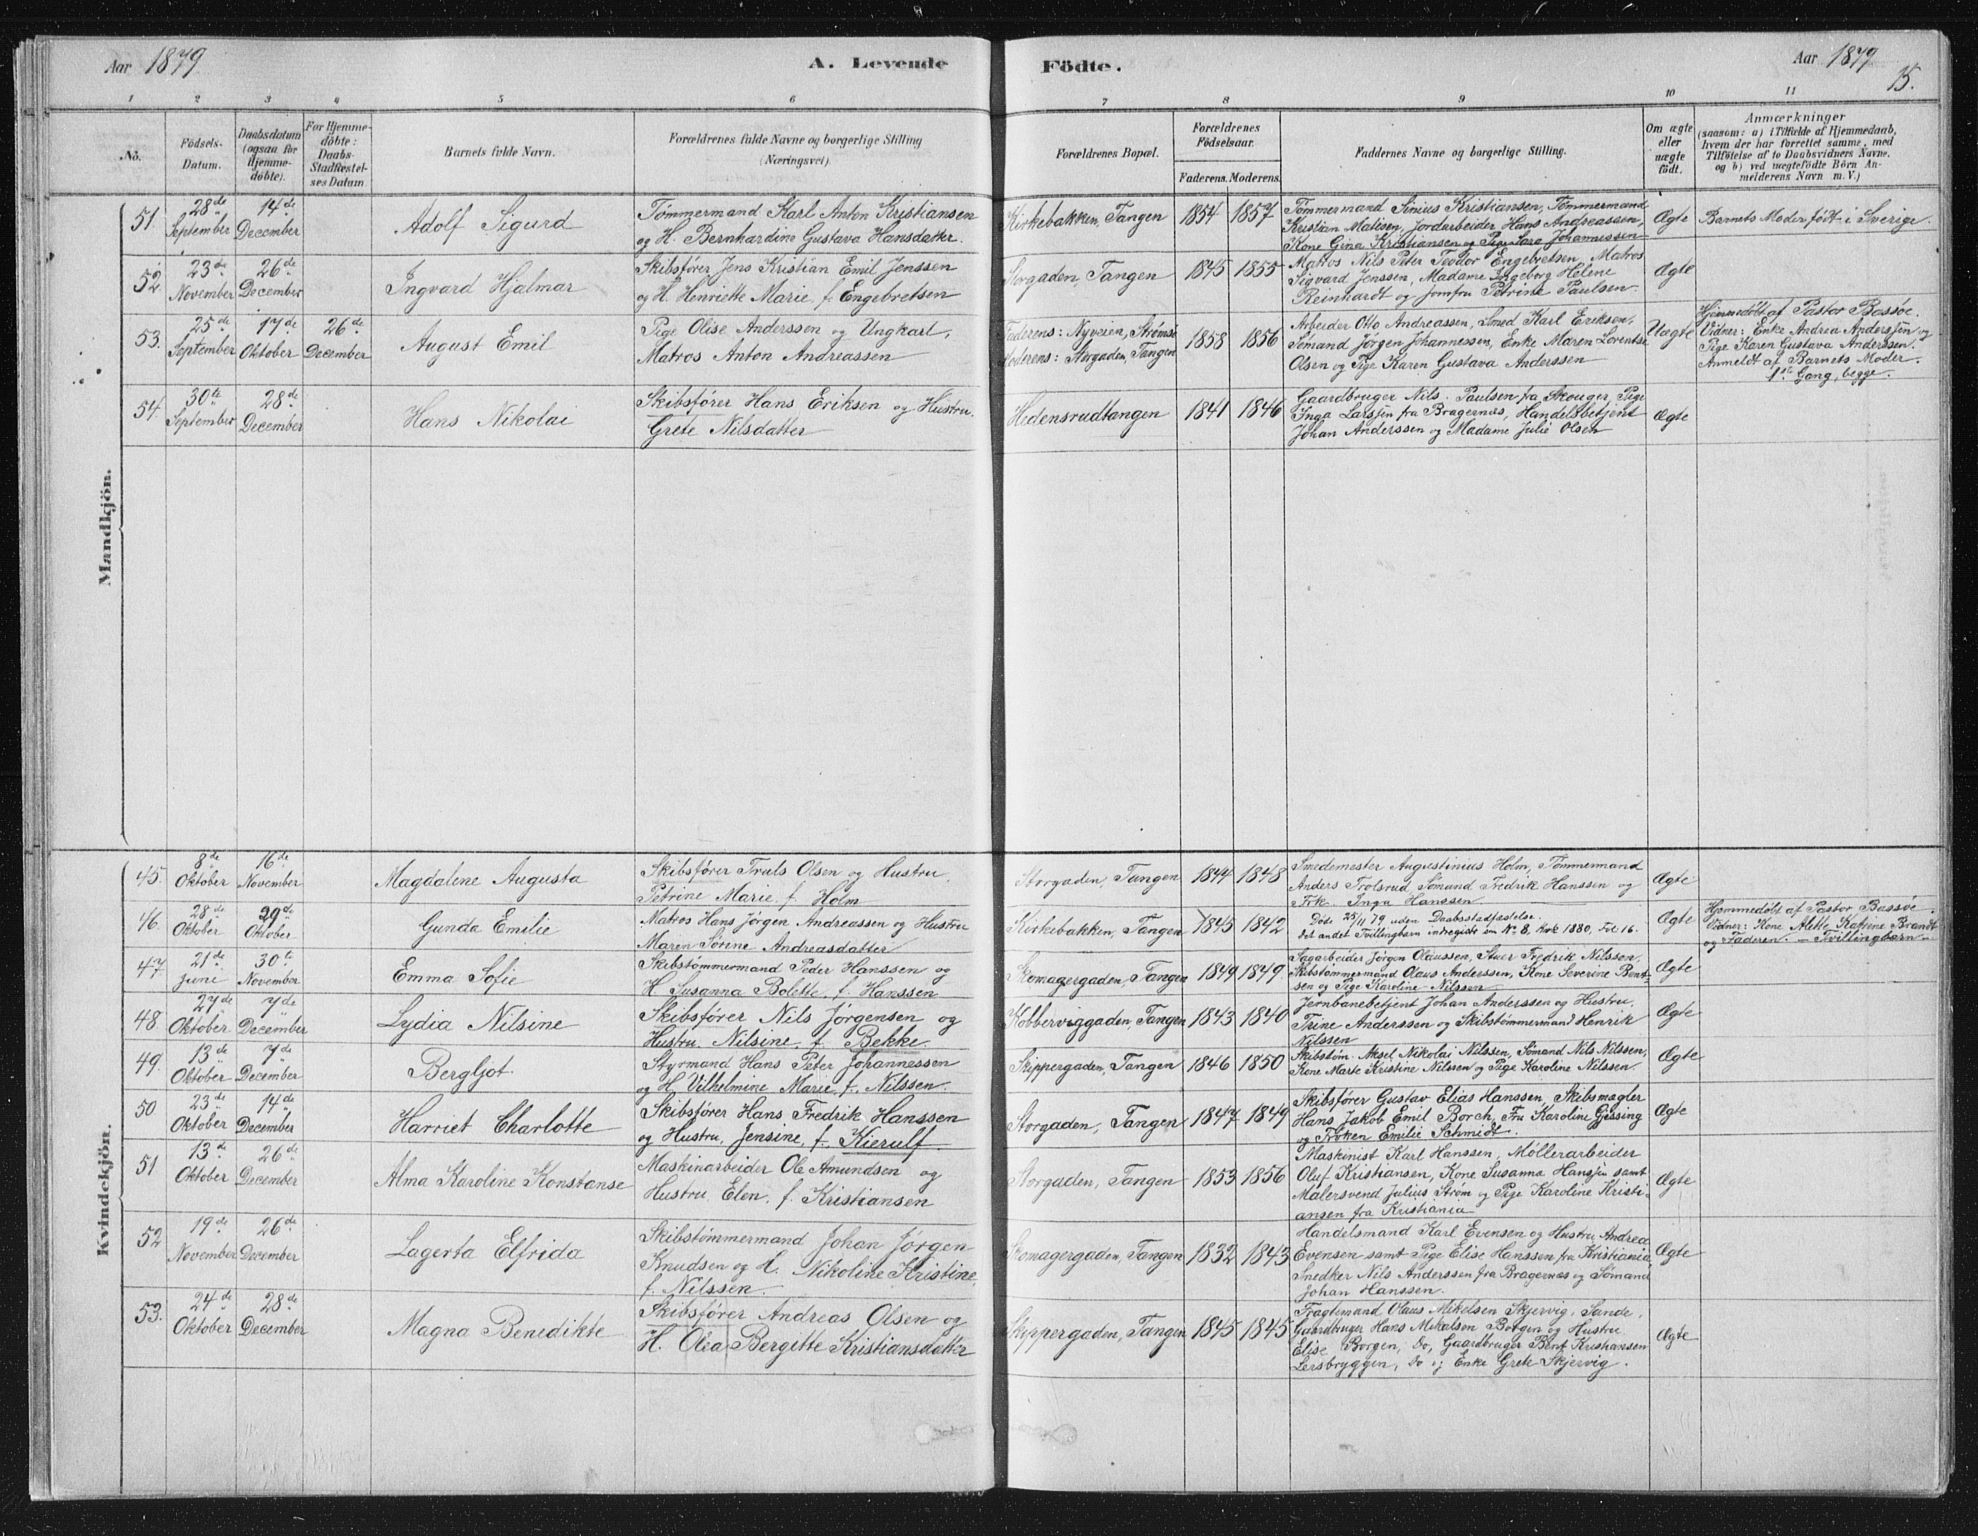 Aar 1879 A. Levende Födte. Aar 1879
15.
1 2 3 4 5 6 7 8 9 10 11
No.
Födsels-
Datum.
Daabsdatum
(ogsaa for
Hjemme-
döbte).
For Hjemme-
döbte:
Daabs-
Stadfæstel-
ses Datum
Barnets fulde Navn.
Forældrenes fulde Navne og borgerlige Stilling
(Næringsvei).
Forældrenes Bopæl.
Forældrenes
Födselsaar.
Faderens. Moderens.
Faddernes Navne og borgerlige Stilling.
Om ægte
eller
uægte
födt.
Anmærkninger
(saasom: a) i Tilfælde af Hjemmedaab,
hvem der har forrettet samme, med
Tilföielse af to Daabsvidners Navne.
og b) ved uægtefödte Börn An-
melderens Navn m. V.)
Mandkjön.
51.
28de
September
14de
December
Adolf Sigurd
Tømmermand Karl Anton Kristiansen
og H. Bernhardine Gustava Hansdatter.
Kirkebakken, Tangen
1854 1857
Tømmermand Sinius Kristiansen, Tømmermand
Kristian Matisen, Jordarbeider Hans Andreassen,
Kone Gina Kristiansen og Pige Sara Johannessen
Ægte
Barnets Moder født i Sverige.
52
23de
November
26de
December
Ingvard Hjalmar
Skibsfører Jens Kristian Emil Jenssen
og H. Henriette Marie, f. Engebretsen
Storgaden, Tangen
1845 1855
Matros Nils Peter Teodor Engebretsen, Matros
Sigvard Jenssen, Madame Ingeborg Helene
Reinhardt og Jomfru Petrine Paulsen.
Ægte
53.
25de
September
17de
Oktober
26de
December
August Emil
Pige Olise Anderssen og Ungkarl,
Matros Anton Andreassen
Faderens: Nyveien, Strømsø
Moderens: Storgaden, Tangen
1858 1856
Arbeider Otto Andreassen, Smed Karl Eriksen,
Sømand Jørgen Johannessen, Enke Maren Lorentse
Olsen og Pige Karen Gustava Anderssen
Uægte
Hjemmedøbt af Pastor Bassøe.
Vidner: Enke Andrea Anderssen og
Pige Karen Gustava Anderssen.
Anmeldt af Barnets Moder.
1ste Gang, begge.
54
30te
September
28de
December
Hans Nikolai
Skibsfører Hans Eriksen og Hustru
Grete Nilsdatter
Hedensrudtangen
1841 1846
Gaardbruger Nils Paulsen fra Skouger, Pige
Inga Larssen fra Bragernæs, Handelsbetjent
Johan Anderssen og Madame Julie Olsen
Ægte
Kvindekjön.
45.
8de
Oktober
16de
November
Magdalene Augusta
Skibsfører Truls Olsen og Hustru
Petrine Marie f. Holm
Storgaden, Tangen
1844 1848
Smedemester Augustinius Holm, Tømmermand
Anders Trolsrud, Sømand Fredrik Hanssen og
Frk. Inga Hanssen
Ægte
46.
28de
Oktober
29de
Oktober
Gunda Emilie
Matros Hans Jørgen Andreassen og Hustru
Maren Sørine Andreasdatter
Kirkebakken, Tangen
1845 1842
Døde 25/11 79 uden Daabsstadfæstelse.
Det andet Tvillingbarn indregistr. sm No 8, Kvk 1880, Fol 16.
Ægte
Hjemmedøbt af Pastor Bassøe.
Vidner: Kone Alette Katrine Brandt
og Faderen. — Tvillingbarn —
47
21de
Juni
30te
November
Emma Sofie
Skibstømmermand Peder Hanssen og
H. Susanna Bolette, f. Hanssen
Skomagergaden, Tangen
1849 1849
Sagarbeider Jørgen Olaussen, Stuer Fredrik Nilsson,
Skibstømmermand Olaus Anderssen, Kone Severine Bent-
sen og Pige Karoline Nilssen
Ægte
48
27de
Oktober
7de
December
Lydia Nilsine
Skibsfører Nils Jørgensen og
Hustru Nilsine, f. Bekke.
Kobberviggaden, Tangen
1843 1840
Jernbanebetjent Johan Anderssen og Hustru
Trine Anderssen og Skibstømmermand Henrik
Nilssen
Ægte
49.
13de
Oktober
7de
December
Bergljot.
Styrmand Hans Peter Johannessen
og H. Vilhelmine Marie, f. Nilssen.
Skippergaden, Tangen
1846 1850
Skibstøm. Aksel Nikolai Nilssen, Sømand Nils Nilssen,
Kone Marte Kristine Nilssen og Pige Karoline Nilssen.
Ægte
50
23de
Oktober
14de
December
Harriet Charlotte
Skibsfører Hans Fredrik Hanssen
og Hustru, Jensine, f. Kierulf.
Storgaden, Tangen
1847 1849
Skibsfører Gustav Elias Hanssen, Skibsmægler
Hans Jakob Emil Borch, Fru Karoline Gjessing
og Frøken Emilie Schmidt.
Ægte
51
13de
Oktober
26de
December
Alma Karoline Konstanse
Maskinarbeider Ole Amundsen og
Hustru Elen, f. Kristiansen
Storgaden, Tangen
1853 1856
Maskinist Karl Hanssen, Møllerarbeider
Oluf Kristiansen, Kone Susanna Hanssen samt
Malersvend Julius Strøm og Pige Karoline Kristi-
ansen fra Kristiania
Ægte
52
19de
November
26de
December
Lagerta Elfrida
Skibstømmermand Johan Jørgen
Knudsen og H. Nikoline Kristine,
f. Nilssen.
Skomagergaden, Tangen
1832 1843
Handelsmand Karl Evensen og Hustru Andrea
Evensen samt Pige Elise Hanssen fra Kristiania
Snedker Nils Anderssen fra Bragernæs og Sømand
Johan Hanssen.
Ægte
53.
24de
Oktober
28de
December
Magna Benedikte
Skibsfører Andreas Olsen og
H. Olea Bergitte Kristiansdatter
Skippergaden, Tangen
1845 1845
Fragtemand Olaus Mikelsen Skjervig, Sande,
Gaardbruger Hans Mikalsen Borgen og Hustru
Elise Borgen, Do, Gaardbruger Bent Kristiansen
Lersbryggen, Do og Enke Grete Skjervig.
Ægte